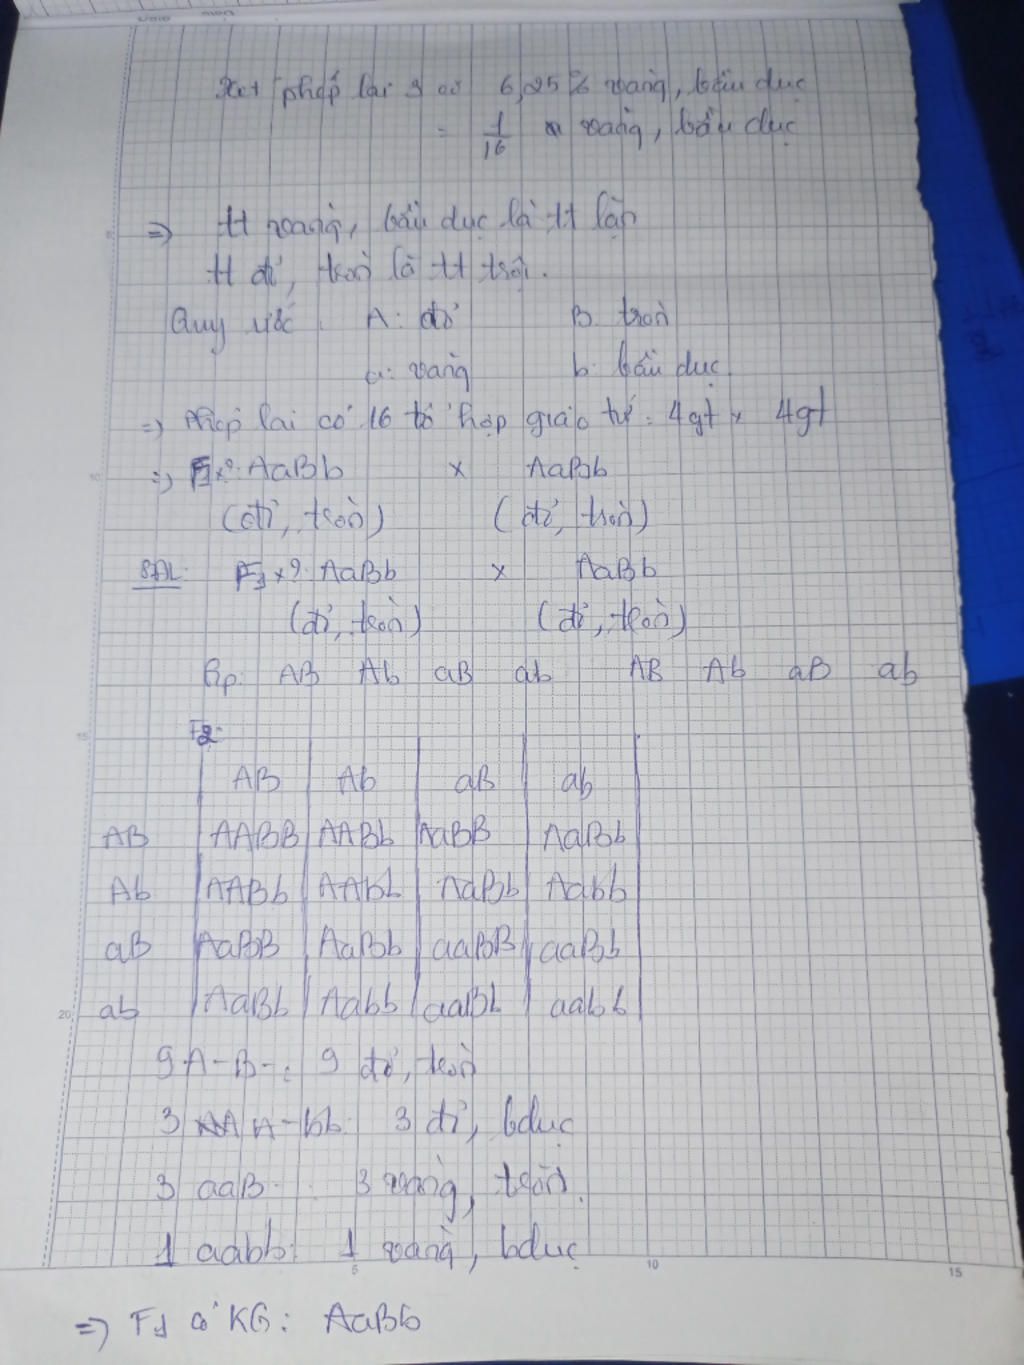 Xét phép lai 3 có 6,25% vàng, bầu dục
= 1/16 vàng, bầu dục
=> tt vàng, bầu dục là tt lặn
tt đỏ, tròn là tt trội.
Quy ước: A: đỏ B: tròn
a: vàng b: bầu dục
=> Phép lai có 16 tổ hợp giao tử = 4gt x 4gt
=> F1 x ?: AaBb x AaBb
(đỏ, tròn) (đỏ, tròn)
SĐL: F1 x ?: AaBb x AaBb
(đỏ, tròn) (đỏ, tròn)
Gp: AB Ab aB ab AB Ab aB ab
F2:
AB Ab aB ab
AB AABB AABb AaBB AaBb
Ab AABb AAbb AaBb Aabb
aB AaBB AaBb aaBB aaBb
ab AaBb Aabb aaBb aabb
9 A-B-: 9 đỏ, tròn
3 A-bb: 3 đỏ, bdục
3 aaB-: 3 vàng, tròn.
1 aabb: 1 vàng, bdục
=> F1 có KG: AaBb
5 10 15
10
15
20